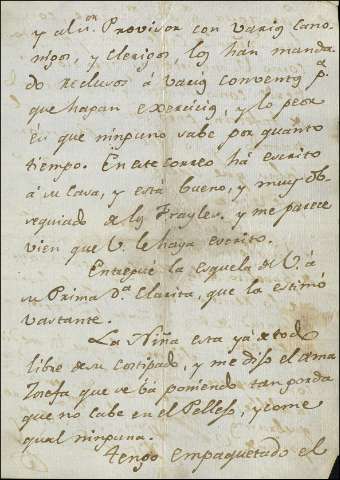 y al s.or Provisor con varios Cano-
nigos, y Clerigos, los hán manda
do reclusos á varios conventos p.a
que hagan exercicios, y lo peor
es que ninguno sabe por quanto
tiempo. En este correo há escrito
á su Casa, y está bueno, y muy ob-
sequiado de los Frayles. y me parece
vien que V. le haya escrito.
Entregué la esquela de V. á
su Prima D.a Clarita, que la estimó
vastante.
La Niña esta yá de todo
libre de su costipado, y me dijo el ama
Josefa que se bá poniendo tan gorda
que no cabe en el Pellejo, y come
qual ninguna.
Tengo empaquetado el